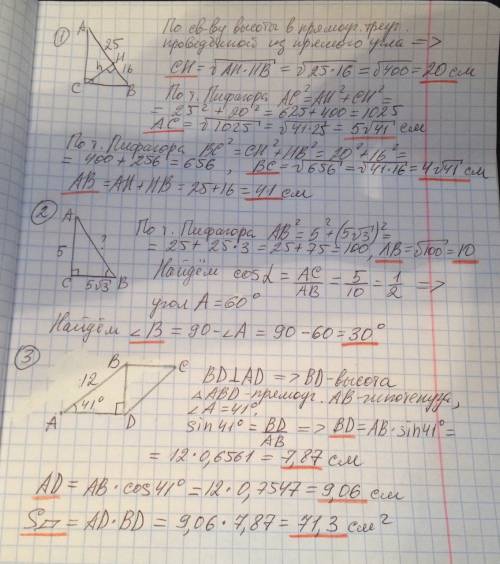 ① По св-ву высоты в прямоуг. треуг.
проведённой из прямого угла =>
A
25
H
h
16
C
B
CH = √AH·HB = √25·16 = √400 = 20 см
По т. Пифагора AC² = AH² + CH² =
= 25² + 20² = 625 + 400 = 1025
AC = √1025 = √41·25 = 5√41 см
По т. Пифагора BC² = CH² + HB² = 20² + 16² =
= 400 + 256 = 656, BC = √656 = √41·16 = 4√41 см
AB = AH + HB = 25 + 16 = 41 см
② A
?
5
C
5√3
B
По т. Пифагора AB² = 5² + (5√3)² =
= 25 + 25·3 = 25 + 75 = 100, AB = √100 = 10
Найдём cosα = AC/AB = 5/10 = 1/2 =>
угол A = 60°
Найдём ∠B = 90 - ∠A = 90 - 60 = 30°
③ B
C
12
41°
A
D
BD⊥AD => BD - высота
△ABD - прямоуг. AB - гипотенуза,
∠A = 41°,
sin 41° = BD/AB => BD = AB·sin 41° =
= 12·0,6561 = 7,87 см
AD = AB·cos 41° = 12·0,7547 = 9,06 см
S▱ = AD·BD = 9,06·7,87 = 71,3 см²